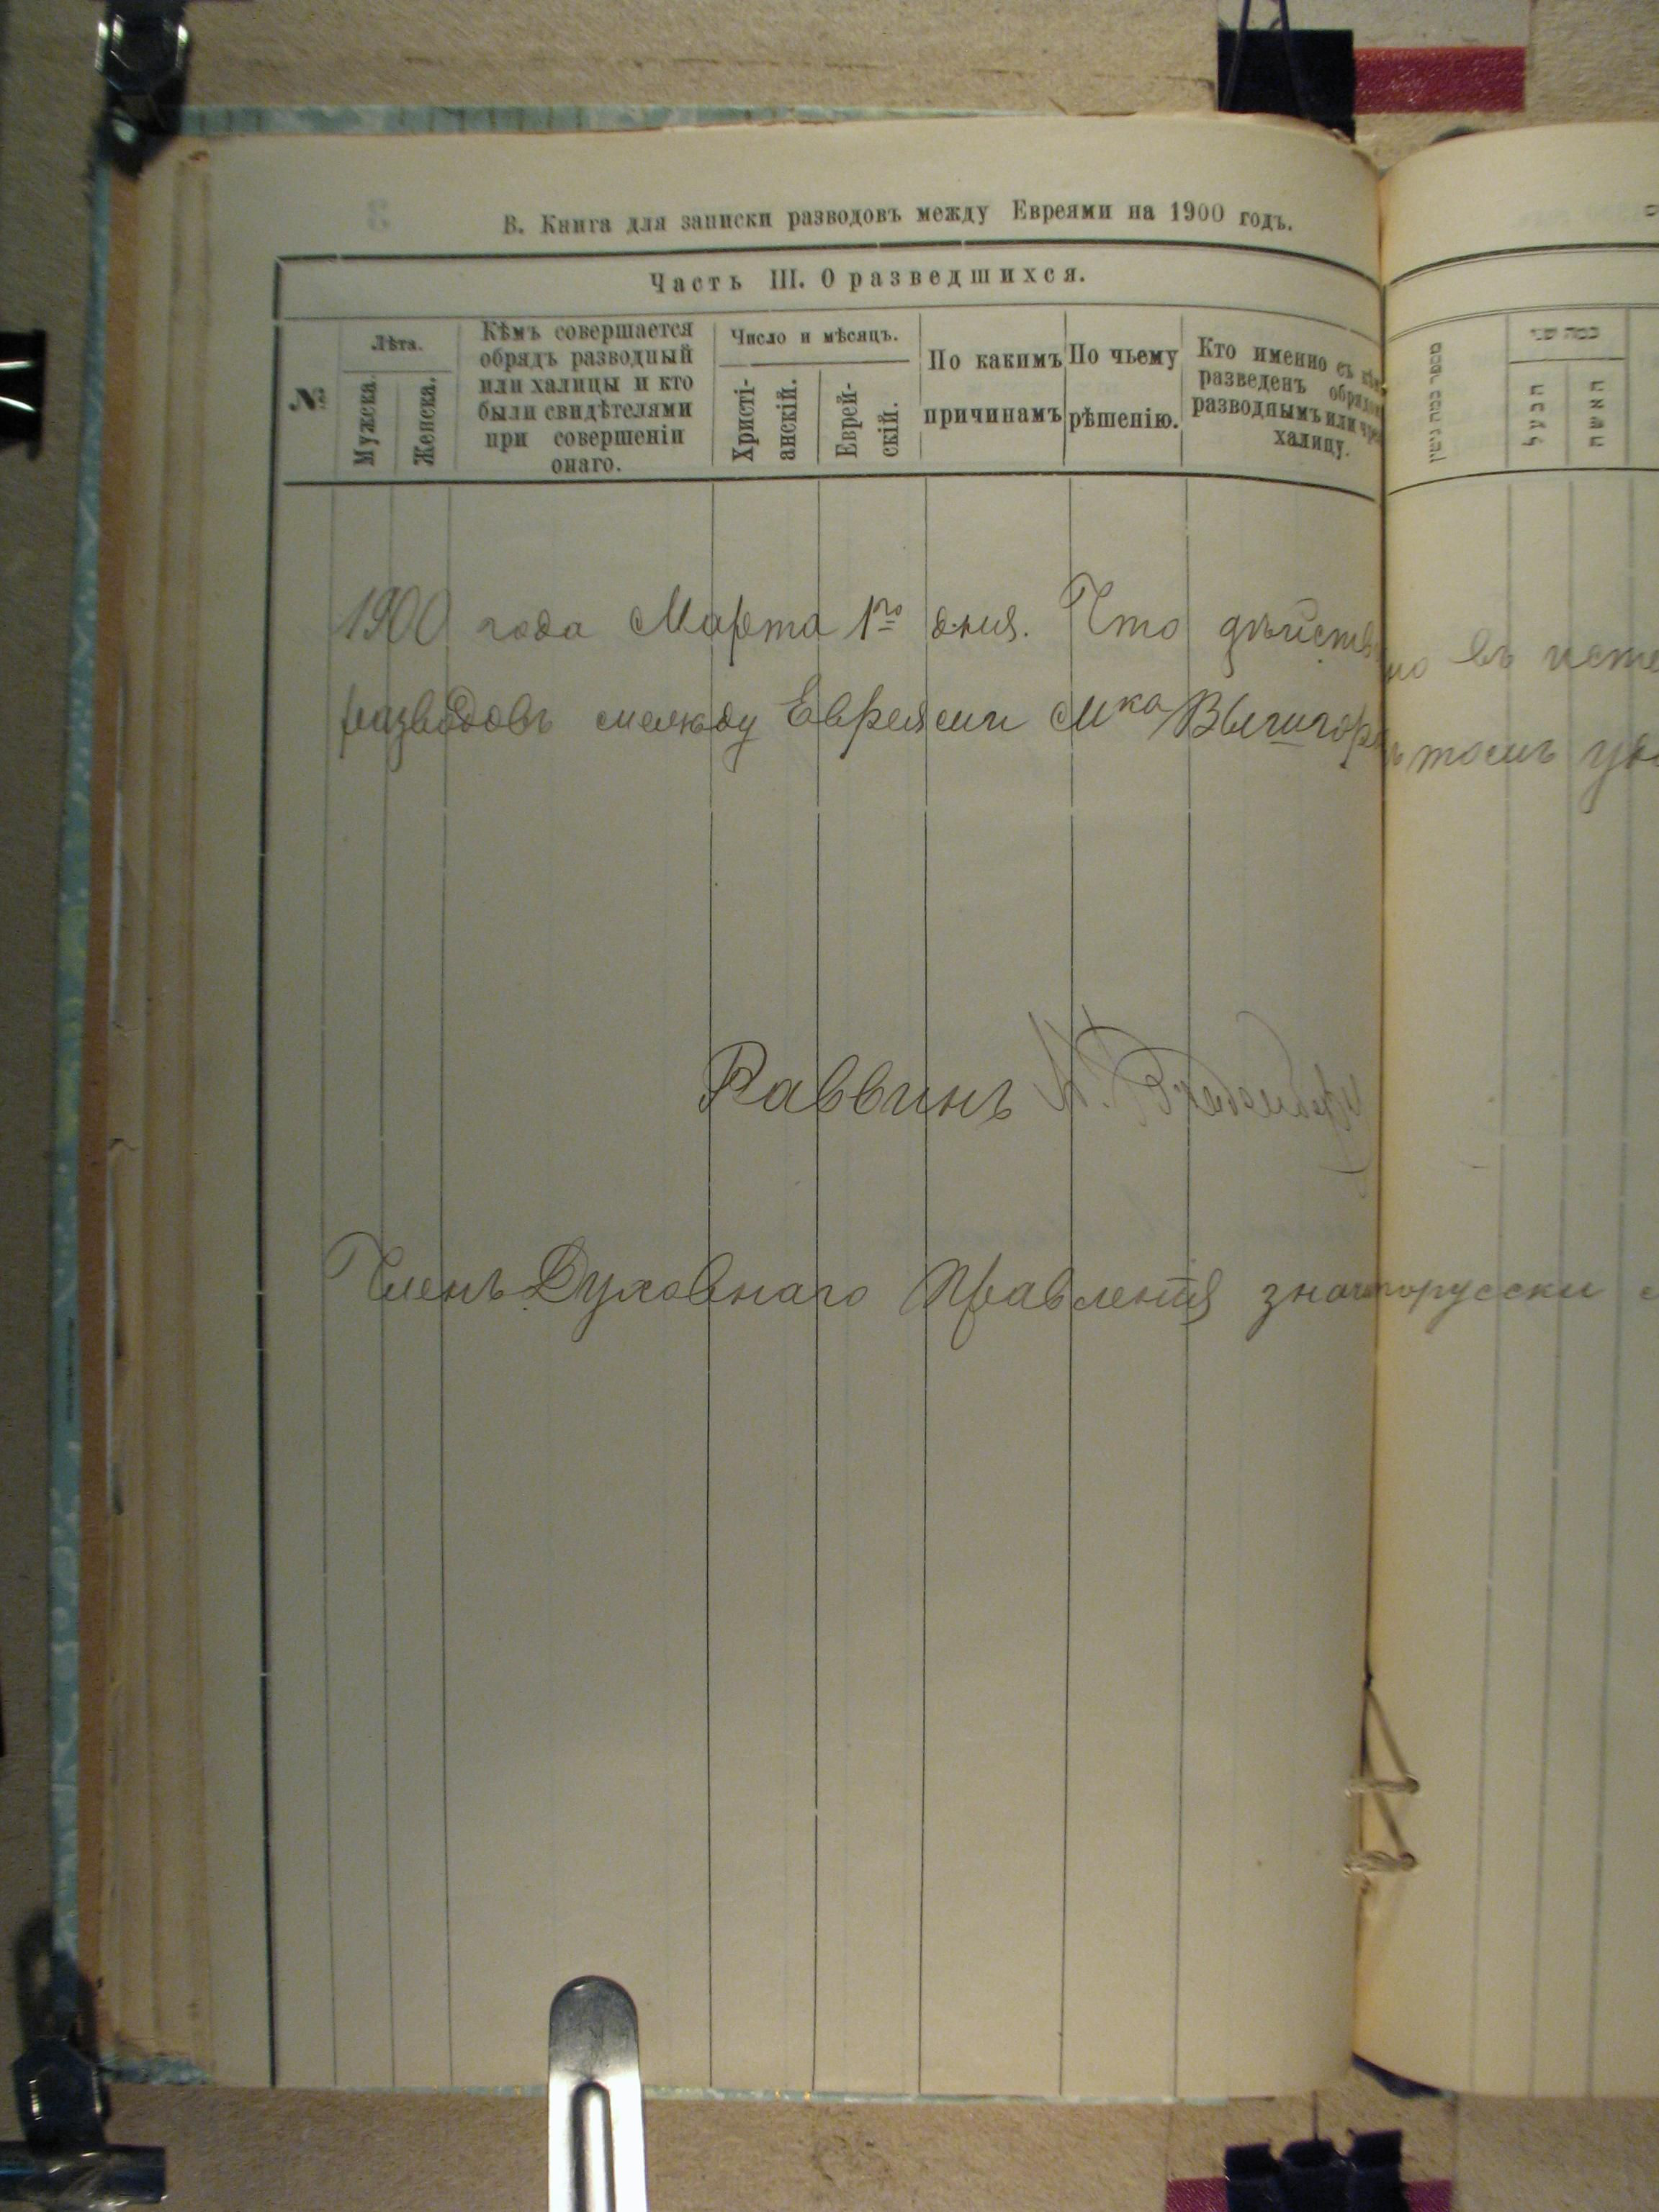 В. Книга для записки разводовъ между Евреями на 1900 годъ.
Часть III. О разведшихся.
№
Лѣта.
Мужска.
Женска.
Кѣмъ совершается
обрядъ разводный
или халицы и кто
были свидѣтелями
при совершеніи
онаго.
Число и мѣсяцъ.
Христі-
анскій.
Еврей-
скій.
По какимъ
причинамъ
По чьему
рѣшенію.
Кто именно съ кѣмъ
разведенъ обрядомъ
разводнымъ или чрезъ
халицу.
כמה שני
הבעל
האשה
1900 года Марта 1го дня. Что дѣйств но въ исте
разводовъ между Евреями м ка Вышгор въ томъ удо
Раввинъ
Членъ Духовнаго Правленія знающ порусски